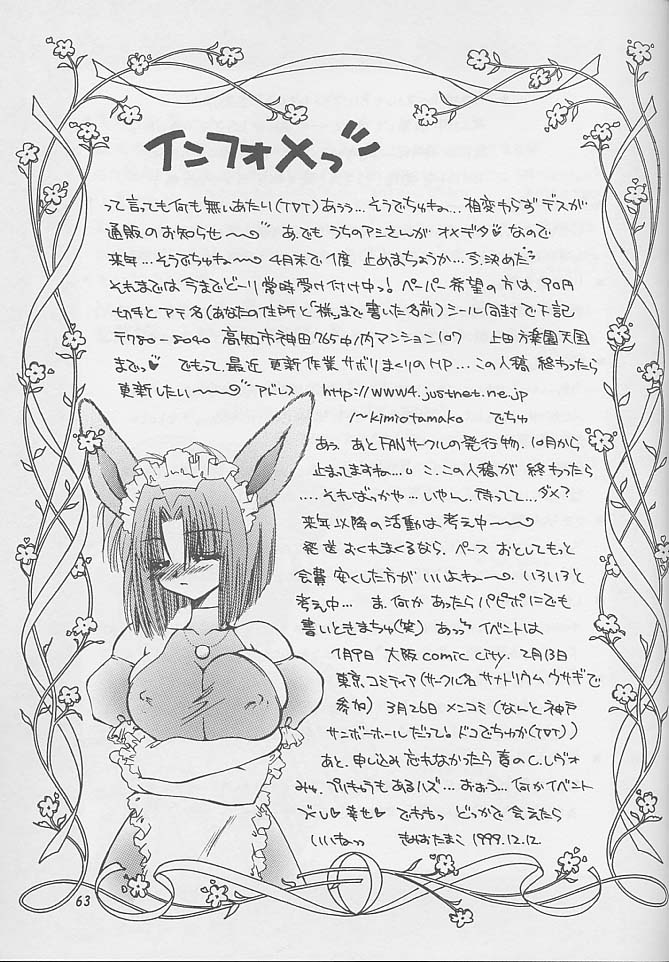 インフォメっ
って言っても何も無いあたり(TДT)あうぅ…そうでちゅねー…相変もらず デスが
通販のお知らせ〜〜 あ、でも うちのアミさんが オメデタ♡ なので
来年…そうでちゅねー 4月末で1度 止めまちょうか…今、決めた?
それまでは今までどーり常時受け付け中っ! ペーパー希望の方は、90円
切手とアテ名(あなたの住所と「様」まで書いた名前)シール同封で下記
〒780-8040 高知市神田765 内マンション107 上田方楽園天国
までっ♡ でもって、最近 更新作業 サボりまくりのHP…この人稿 終わったら
更新したい〜〜 アドレス http://www4.justnet.ne.jp
/~kimiotamako でちゅ
あう、あとFANサークルの発行物、10月から
止まってますねー…。こ、この人稿が 終わったら
….そればっかや…いやん、待ってて…ダメ?
来年以降の活動は考え中〜〜
発送 おくれまくるなら、ペース おとしてもっと
会費 安くした方が いいよねー。いろいろと
考え中… ま、何か あったら パピポにでも
書いときまちゅ(笑) あっっ イベントは
1月9日 大阪comic city、2月13日
東京コミティア(サークル名 サナトリウム ウサギで
参加) 3月26日 メンコミ(なんと神戸
サンボーホールだって。ドコでちゅか(TДT))
あと、申し込み 忘れなかったら 春のC.レヴォ
みゅ、 もあるハズ…おおう…何かイベント
♡幸せ♡ でわわっ どっかで 会えたら
いいねっっ きみおたまこ 1999.12.12.
63